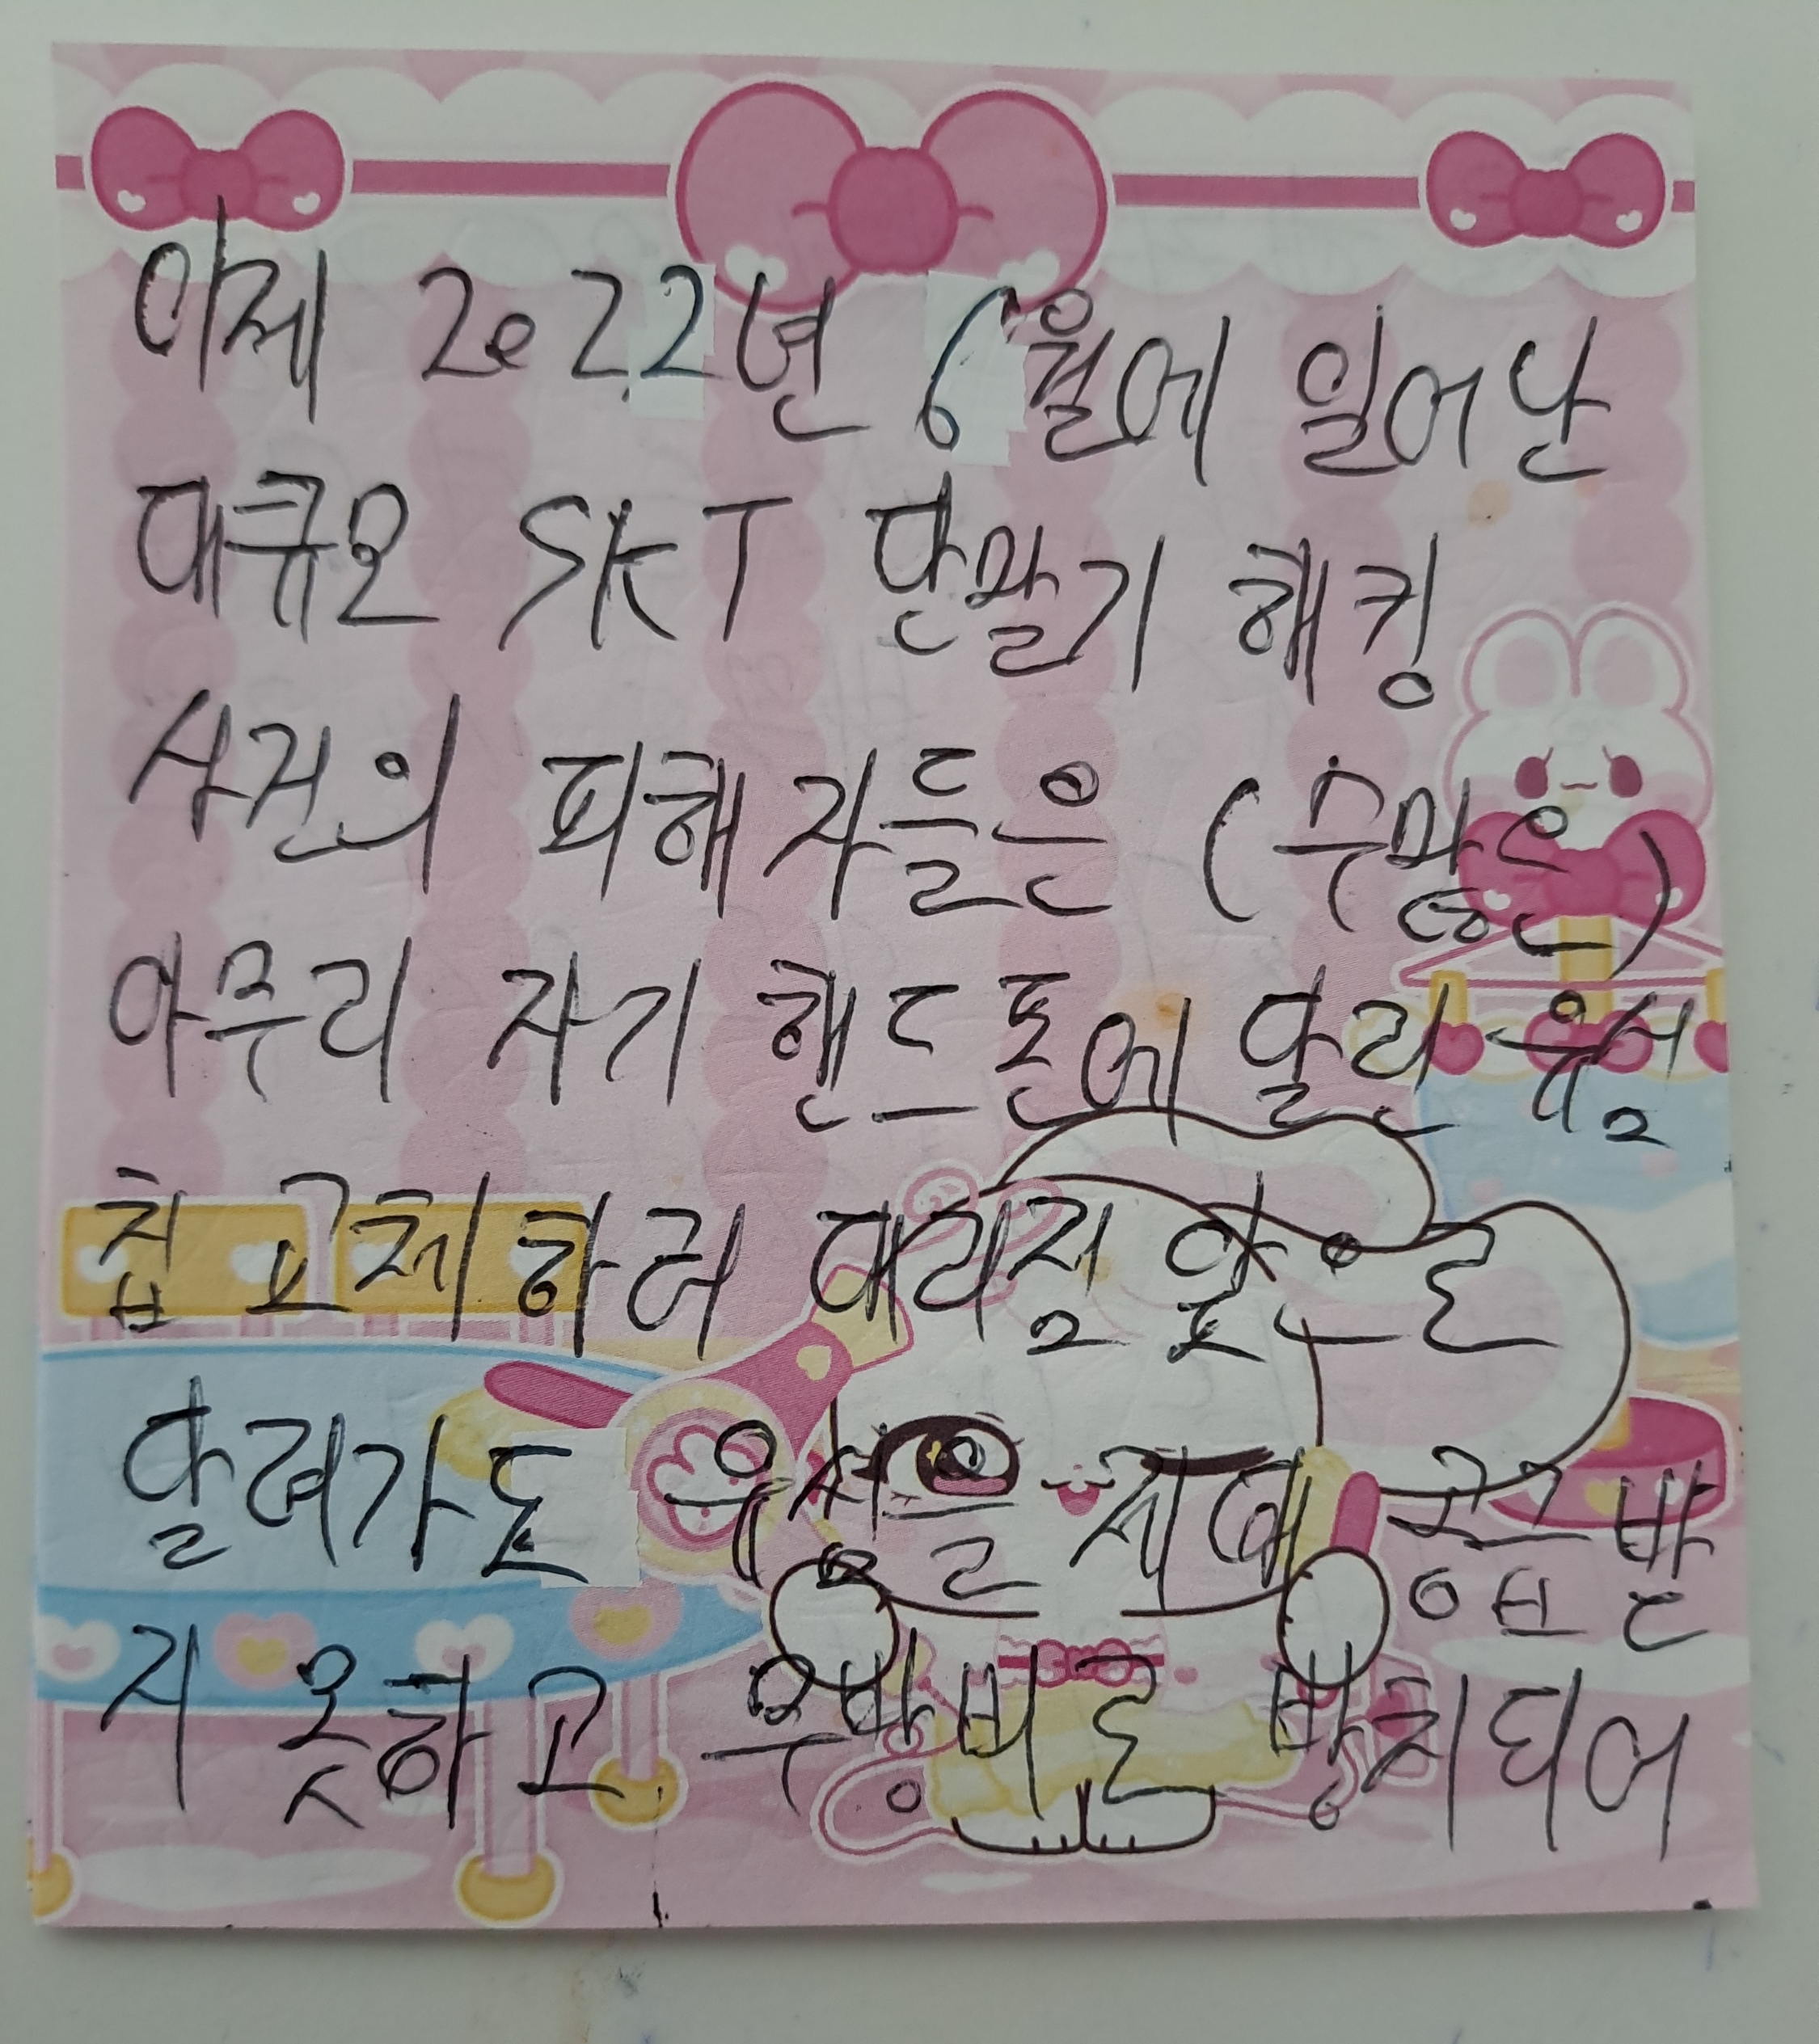 이제 2022년 6월에 일어난
대규모 SKT 단말기 해킹
사건의 피해자들은 (수많은)
아무리 자기 핸드폰에 달린 유심
칩 교체하러 대리점 앞으로
달려가도 유심을 제때 공급받
지 못하고 무방비로 방치되어